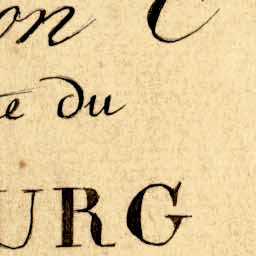 on C
te du
URG